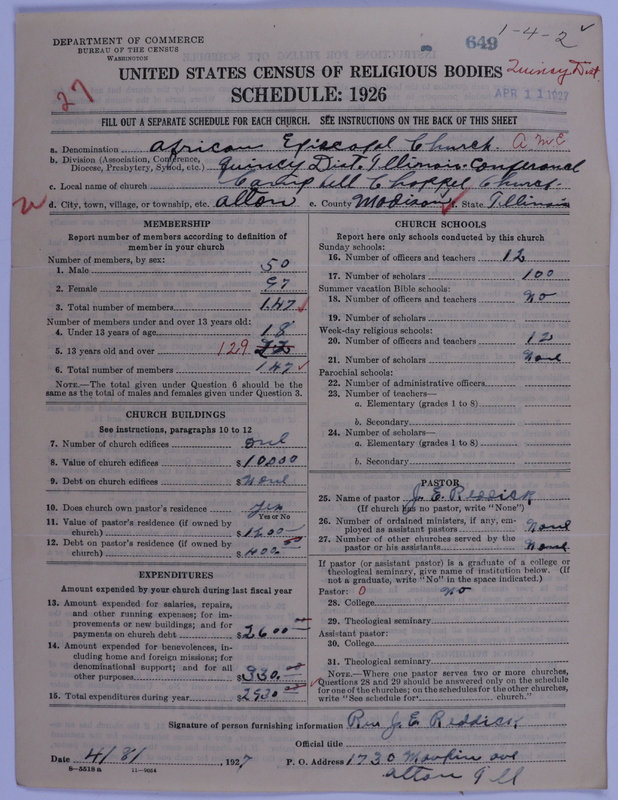 1-4-2 ✓
DEPARTMENT OF COMMERCE
BUREAU OF THE CENSUS
WASHINGTON
649
UNITED STATES CENSUS OF RELIGIOUS BODIES Quincy Dist.
27
SCHEDULE: 1926
APR 11 1927
FILL OUT A SEPARATE SCHEDULE FOR EACH CHURCH. SEE INSTRUCTIONS ON THE BACK OF THIS SHEET
a. Denomination African Episcopal Church. A.M.E
b. Division (Association, Conference, Diocese, Presbytery, Synod, etc.) Quincy Dist. Illinois. Conferance
c. Local name of church Campbell Chappel Church.
d. City, town, village, or township, etc. alton e. County Madison f. State Illinois
MEMBERSHIP
Report number of members according to definition of
member in your church
Number of members, by sex:
1. Male 50
2. Female 97
3. Total number of members 147 ✓
Number of members under and over 13 years old:
4. Under 13 years of age 18
5. 13 years old and over 129
6. Total number of members 147 ✓
NOTE.—The total given under Question 6 should be the
same as the total of males and females given under Question 3.
CHURCH BUILDINGS
See instructions, paragraphs 10 to 12
7. Number of church edifices one
8. Value of church edifices $10000
9. Debt on church edifices $None
10. Does church own pastor's residence yes
Yes or No
11. Value of pastor's residence (if owned by
church)
12. Debt on pastor's residence (if owned by
church) $400.00
EXPENDITURES
Amount expended by your church during last fiscal year
13. Amount expended for salaries, repairs,
and other running expenses; for im-
provements or new buildings; and for
payments on church debt $2600
14. Amount expended for benevolences, in-
cluding home and foreign missions; for
denominational support; and for all
other purposes $330.00
15. Total expenditures during year $2930.00 ✓
CHURCH SCHOOLS
Report here only schools conducted by this church
Sunday schools:
16. Number of officers and teachers 12
17. Number of scholars 100
Summer vacation Bible schools:
18. Number of officers and teachers No
19. Number of scholars
Week-day religious schools:
20. Number of officers and teachers 12
21. Number of scholars None
Parochial schools:
22. Number of administrative officers
23. Number of teachers—
a. Elementary (grades 1 to 8)
b. Secondary
24. Number of scholars—
a. Elementary (grades 1 to 8)
b. Secondary
PASTOR
25. Name of pastor J. E. Reddick
(If church has no pastor, write "None")
26. Number of ordained ministers, if any, em-
ployed as assistant pastors None
27. Number of other churches served by the
pastor or his assistants None
If pastor (or assistant pastor) is a graduate of a college or
theological seminary, give name of institution below. (If
not a graduate, write "No" in the space indicated.)
Pastor: 0 No
28. College
29. Theological seminary
Assistant pastor:
30. College
31. Theological seminary
NOTE.—Where one pastor serves two or more churches,
Questions 28 and 29 should be answered only on the schedule
for one of the churches; on the schedules for the other churches,
write "See schedule for church."
Signature of person furnishing information Rev J. E. Reddick
Official title
Date 4/8/, 1927 P. O. Address 1730 ave
8—5518 a 11—9054 alton Ill